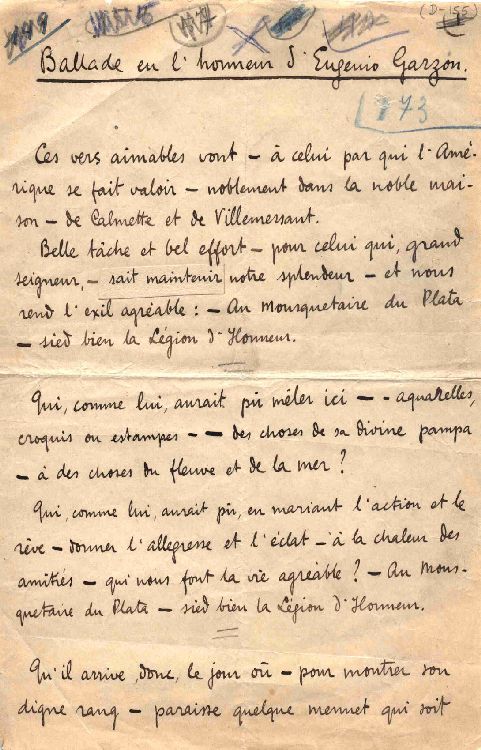 (D-155)
Ballade en l'honneur d'Eugenio Garzón.
173
Ces vers aimables vont — à celui par qui l'Amé-
rique se fait valoir — noblement dans la noble mai-
son — de Calmette et de Villemessant.
Belle tâche et bel effort — pour celui qui, grand
seigneur, — sait maintenir notre splendeur — et nous
rend l'exil agréable : — Au Mousquetaire du Plata
— sied bien la Légion d'Honneur.
Qui, comme lui, aurait pû mêler ici — - aquarelles,
croquis ou estampes — — des choses de sa divine pampa
— à des choses du fleuve et de la mer ?
Qui, comme lui, aurait pû, en mariant l'action et le
rêve — donner l'allegresse et l'éclat — à la chaleur des
amitiés — qui nous font la vie agréable ? — Au Mous-
quetaire du Plata — sied bien la Légion d'Honneur.
Qu'il arrive, donc, le jour où — pour montrer son
digne rang — paraisse quelque menuet qui soit